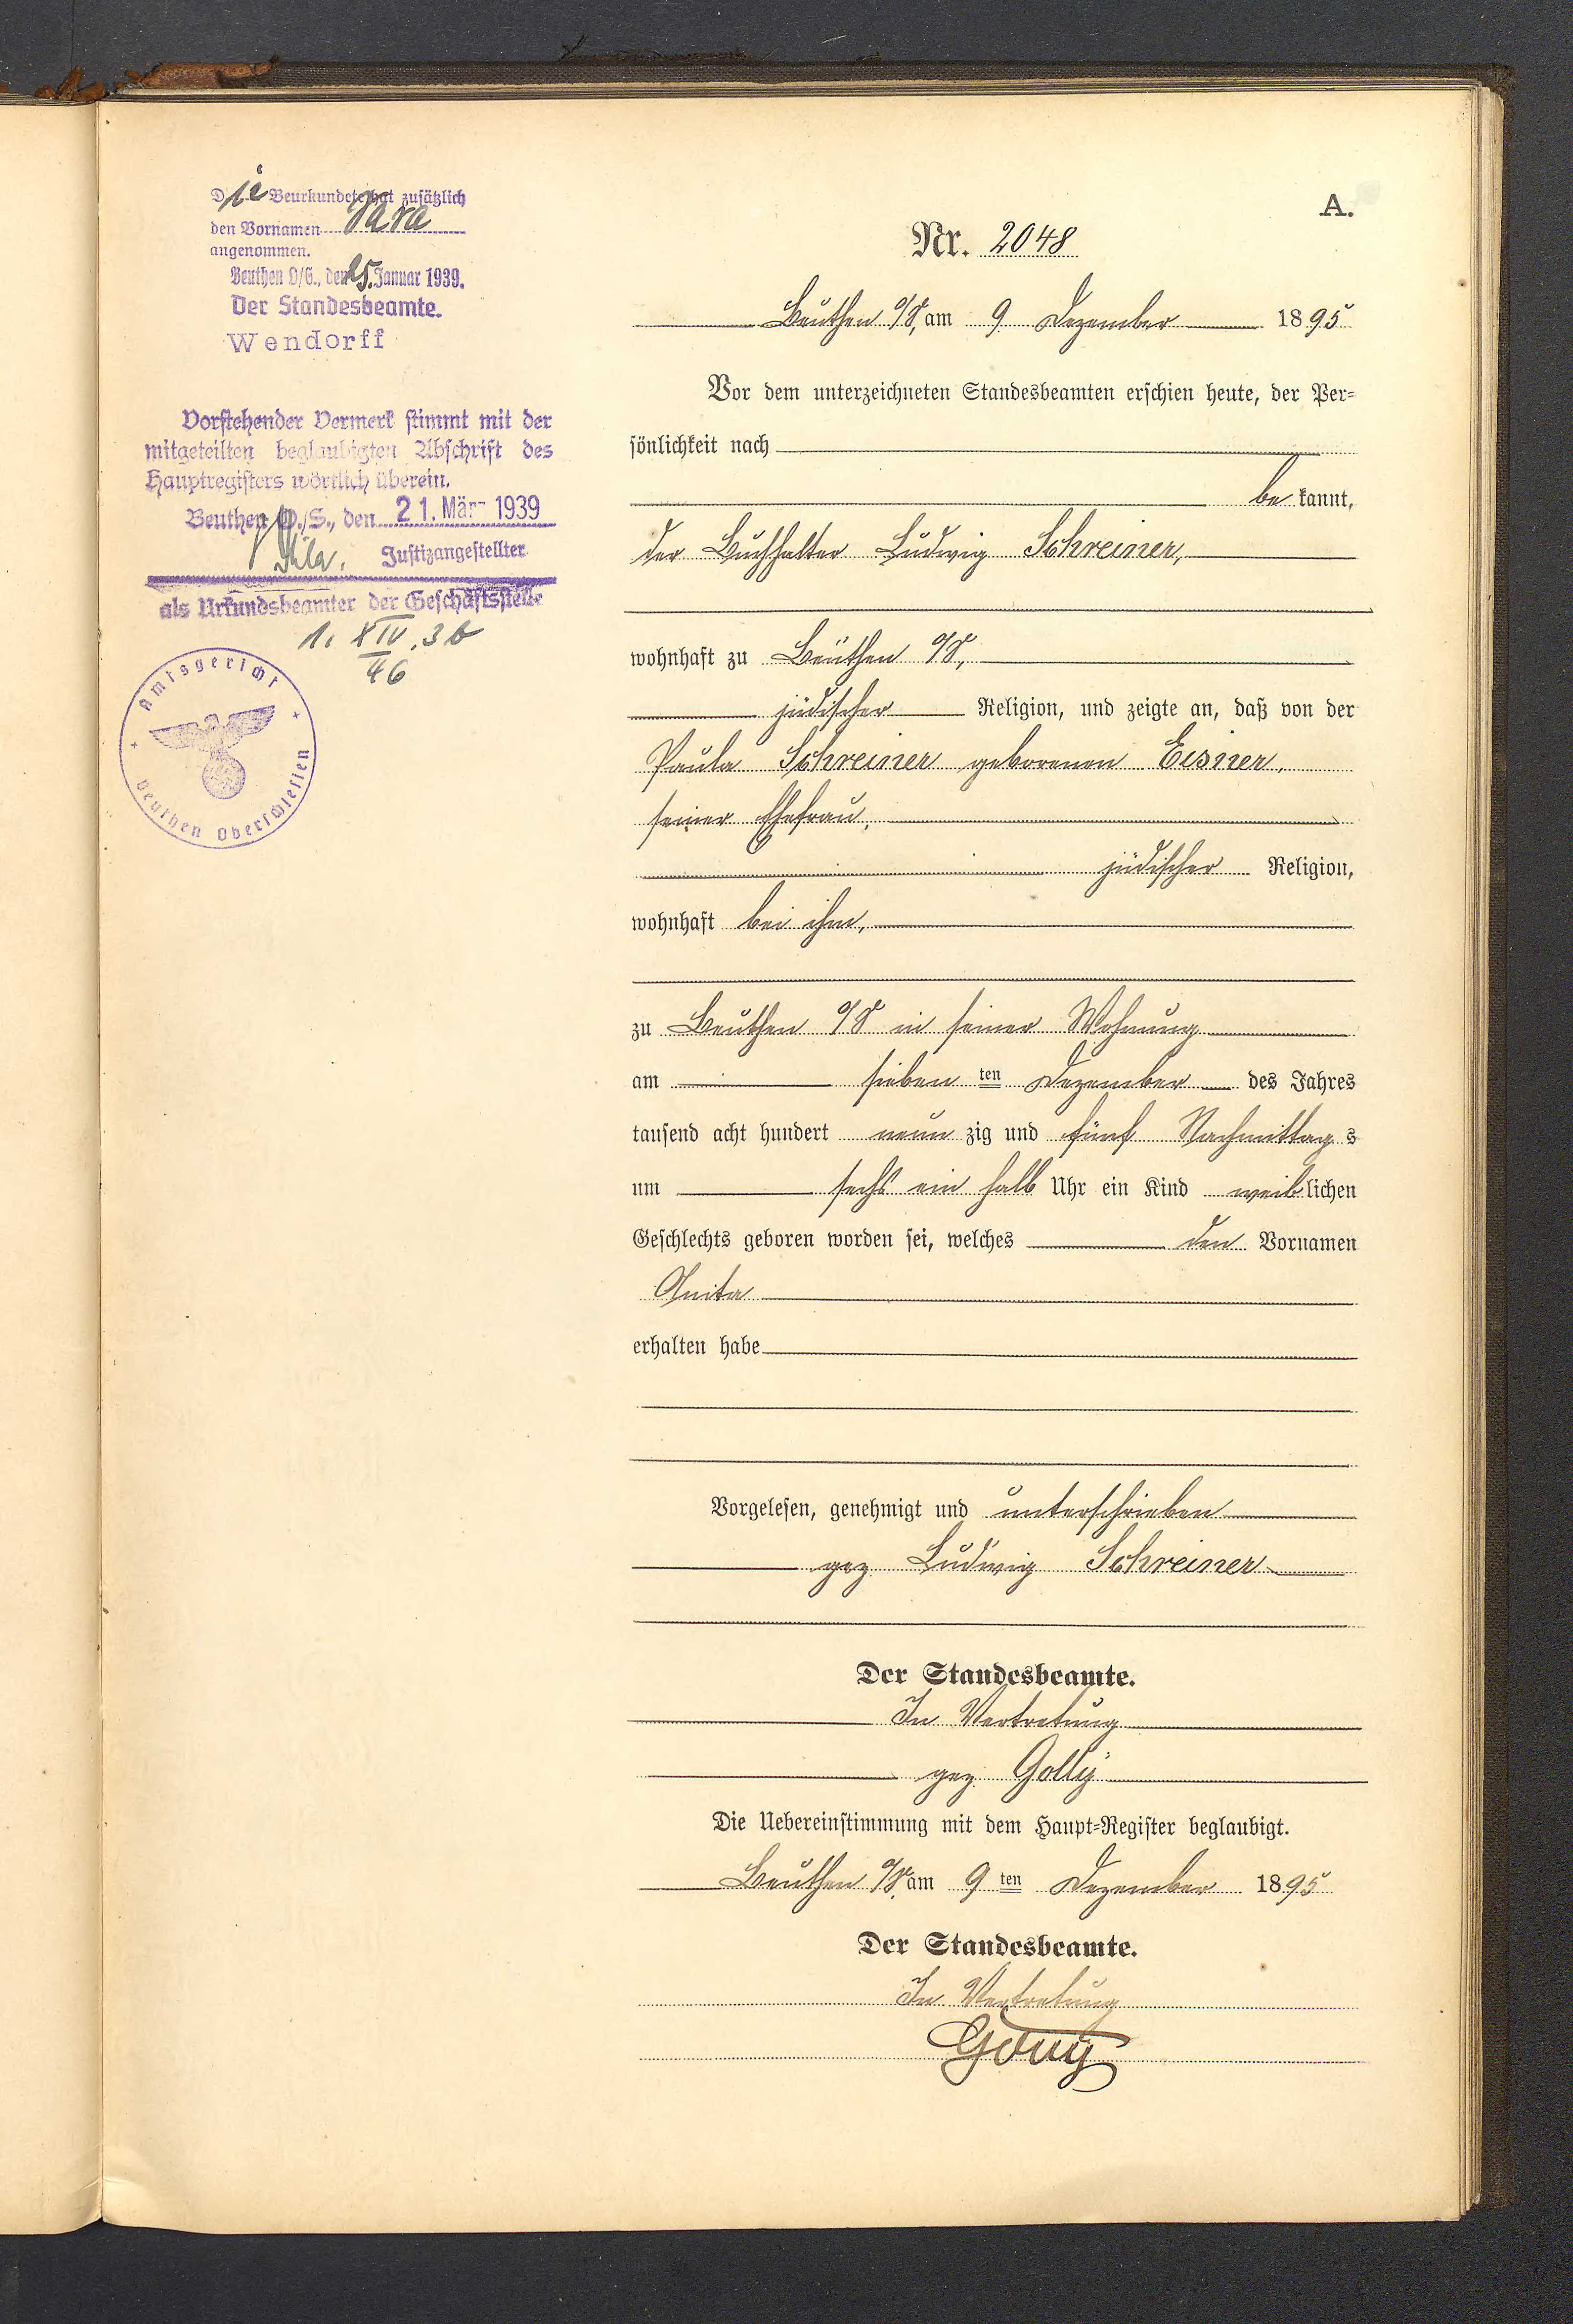 Die Beurkundete hat zusätzlich
den Vornamen Sara
angenommen.
Beuthen O/S., den 25. Januar 1939.
Der Standesbeamte.
Wendorff
Vorstehender Vermerk stimmt mit der
mitgeteilten beglaubigten Abschrift des
Hauptregisters wörtlich überein.
Beuthen O./S., den 21. März 1939
Justizangestellter
als Urkundsbeamter der Geschäftsstelle
1. XIV. 36
46
Amtsgericht
Beuthen Oberschlesien
A.
Nr. 2048
Beuthen O/S, am 9 Dezember 1895
Vor dem unterzeichneten Standesbeamten erschien heute, der Per=
sönlichkeit nach
be kannt,
der Buchhalter Ludwig Schreiner,
wohnhaft zu Beuthen O/S,
jüdischer Religion, und zeigte an, daß von der
Paula Schreiner geborenen Eisner,
seiner Ehefrau,
jüdischer Religion,
wohnhaft bei ihm,
zu Beuthen O/S in seiner Wohnung
am sieben ten Dezember des Jahres
tausend acht hundert neun zig und fünf Nachmittag s
um sechs ein halb Uhr ein Kind weib lichen
Geschlechts geboren worden sei, welches den Vornamen
Anita
erhalten habe
Vorgelesen, genehmigt und unterschrieben
gez Ludwig Schreiner
Der Standesbeamte.
In Vertretung
gez Golly
Die Uebereinstimmung mit dem Haupt=Register beglaubigt.
Beuthen O/S, am 9 ten Dezember 1895
Der Standesbeamte.
In Vertretung
Golly